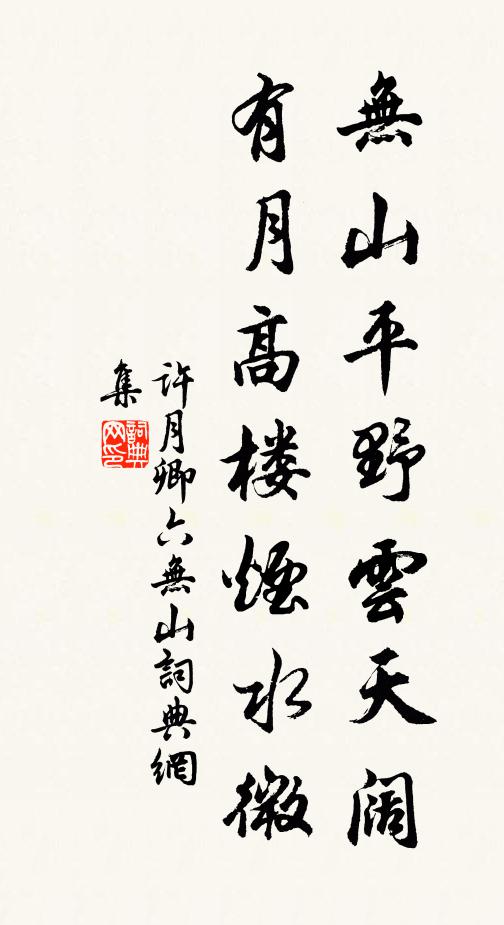 無山平野雲天阔
有月高楼煙水微
許月卿六無山詞典網
集
詞典
网印